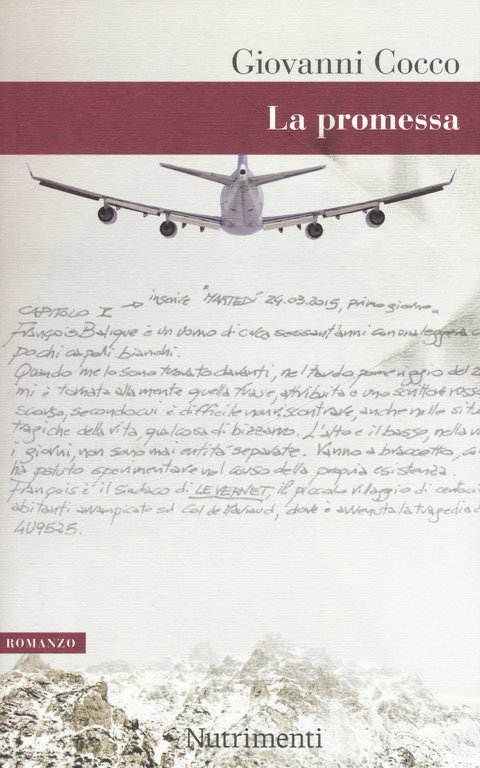 Giovanni Cocco
La promessa
CAPITOLO I → inserire "MARTEDÌ 24.03.2015, primo giorno"
François Balique è un uomo di circa sessant'anni con una leggera
pochi capelli bianchi.
Quando me lo sono trovato davanti, nel tardo pomeriggio del 2
mi è tornata alla mente quella frase, attribuita a uno scrittore russo
scorso, secondo cui è difficile non riscontrare, anche nelle
tragiche della vita, qualcosa di bizzarro. L'alto e il basso, nella
i giorni, non sono mai entità separate. Vanno a braccetto,
ha potuto sperimentare nel corso della propria esistenza.
François è il sindaco di LE VERNET, il piccolo villaggio di
abitanti avvampicato sul Col de Mariaud, dove è avvenuta la tragedia
4U9525.
ROMANZO
Nutrimenti